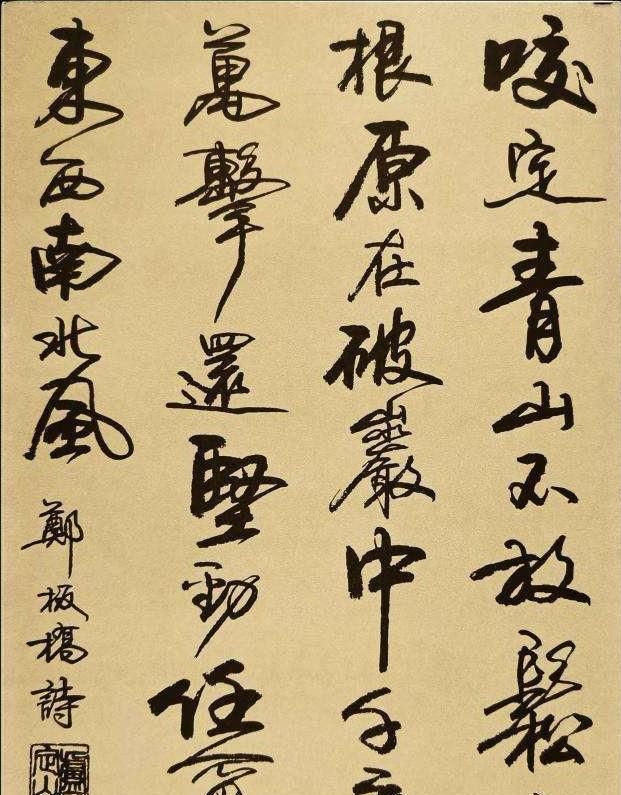 咬定青山不放鬆
根原在破巖中千
萬擊還堅勁任
東西南北風
鄭板橋詩